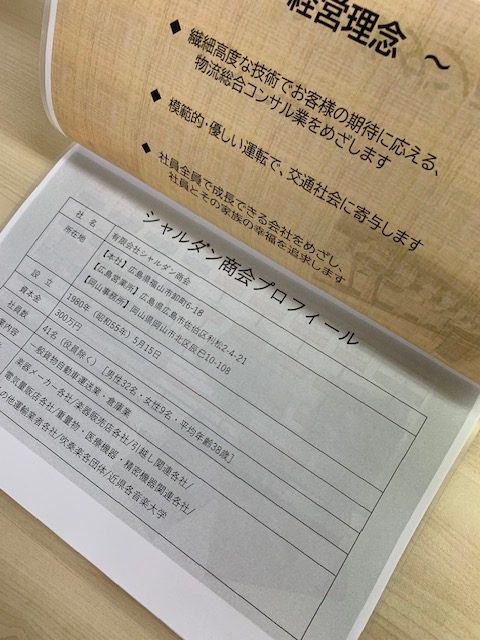 経営理念 ～
◆ 繊細高度な技術でお客様の期待に応える、
物流総合コンサル業をめざします
◆ 模範的・優しい運転で、交通社会に寄与します
◆ 社員全員で成長できる会社をめざし、
社員とその家族の幸福を追求します
シャルダン商会プロフィール
社 名 有限会社シャルダン商会
所在地 【本社】広島県福山市卸町6-18
【広島営業所】広島県広島市佐伯区利松2-4-21
【岡山事務所】岡山県岡山市北区辰巳10-108
設 立 1980年（昭和55年）5月15日
資本金 300万円
社員数 41名（役員除く）［男性32名・女性9名・平均年齢38歳］
業内容 一般貨物自動車運送業・倉庫業
楽器メーカー各社/楽器販売店各社/引越し関連各社/
電気量販店各社/重量物・医療機器・精密機器関連各社/
の他運輸業者各社/吹奏楽各団体/近県各音楽大学